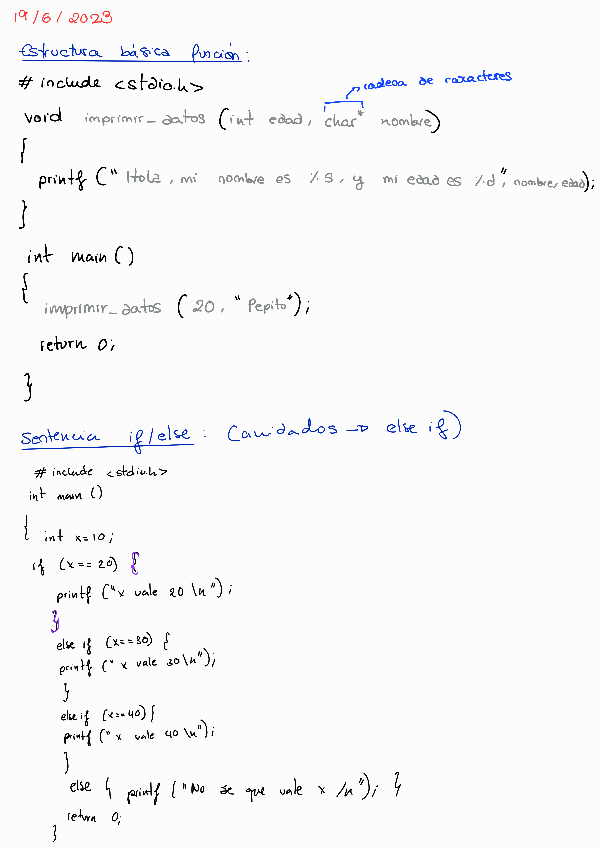 19/6/2023
Estructura básica función:
# include <stdio.h>
cadena de caracteres
void imprimir_datos (int edad, char* nombre)
{
printf ("Hola, mi nombre es %s, y mi edad es %d", nombre, edad);
}
int main ()
{
imprimir_datos (20, "Pepito");
return 0;
}
Sentencia if/else: (anidados → else if)
# include <stdio.h>
int main ()
{ int x=10;
if (x == 20) {
printf ("x vale 20 \n");
}
else if (x==30) {
printf (" x vale 30 \n");
}
else if (x==40) {
printf (" x vale 40 \n");
}
else { printf ("No se que vale x /n"); }
return 0;
}